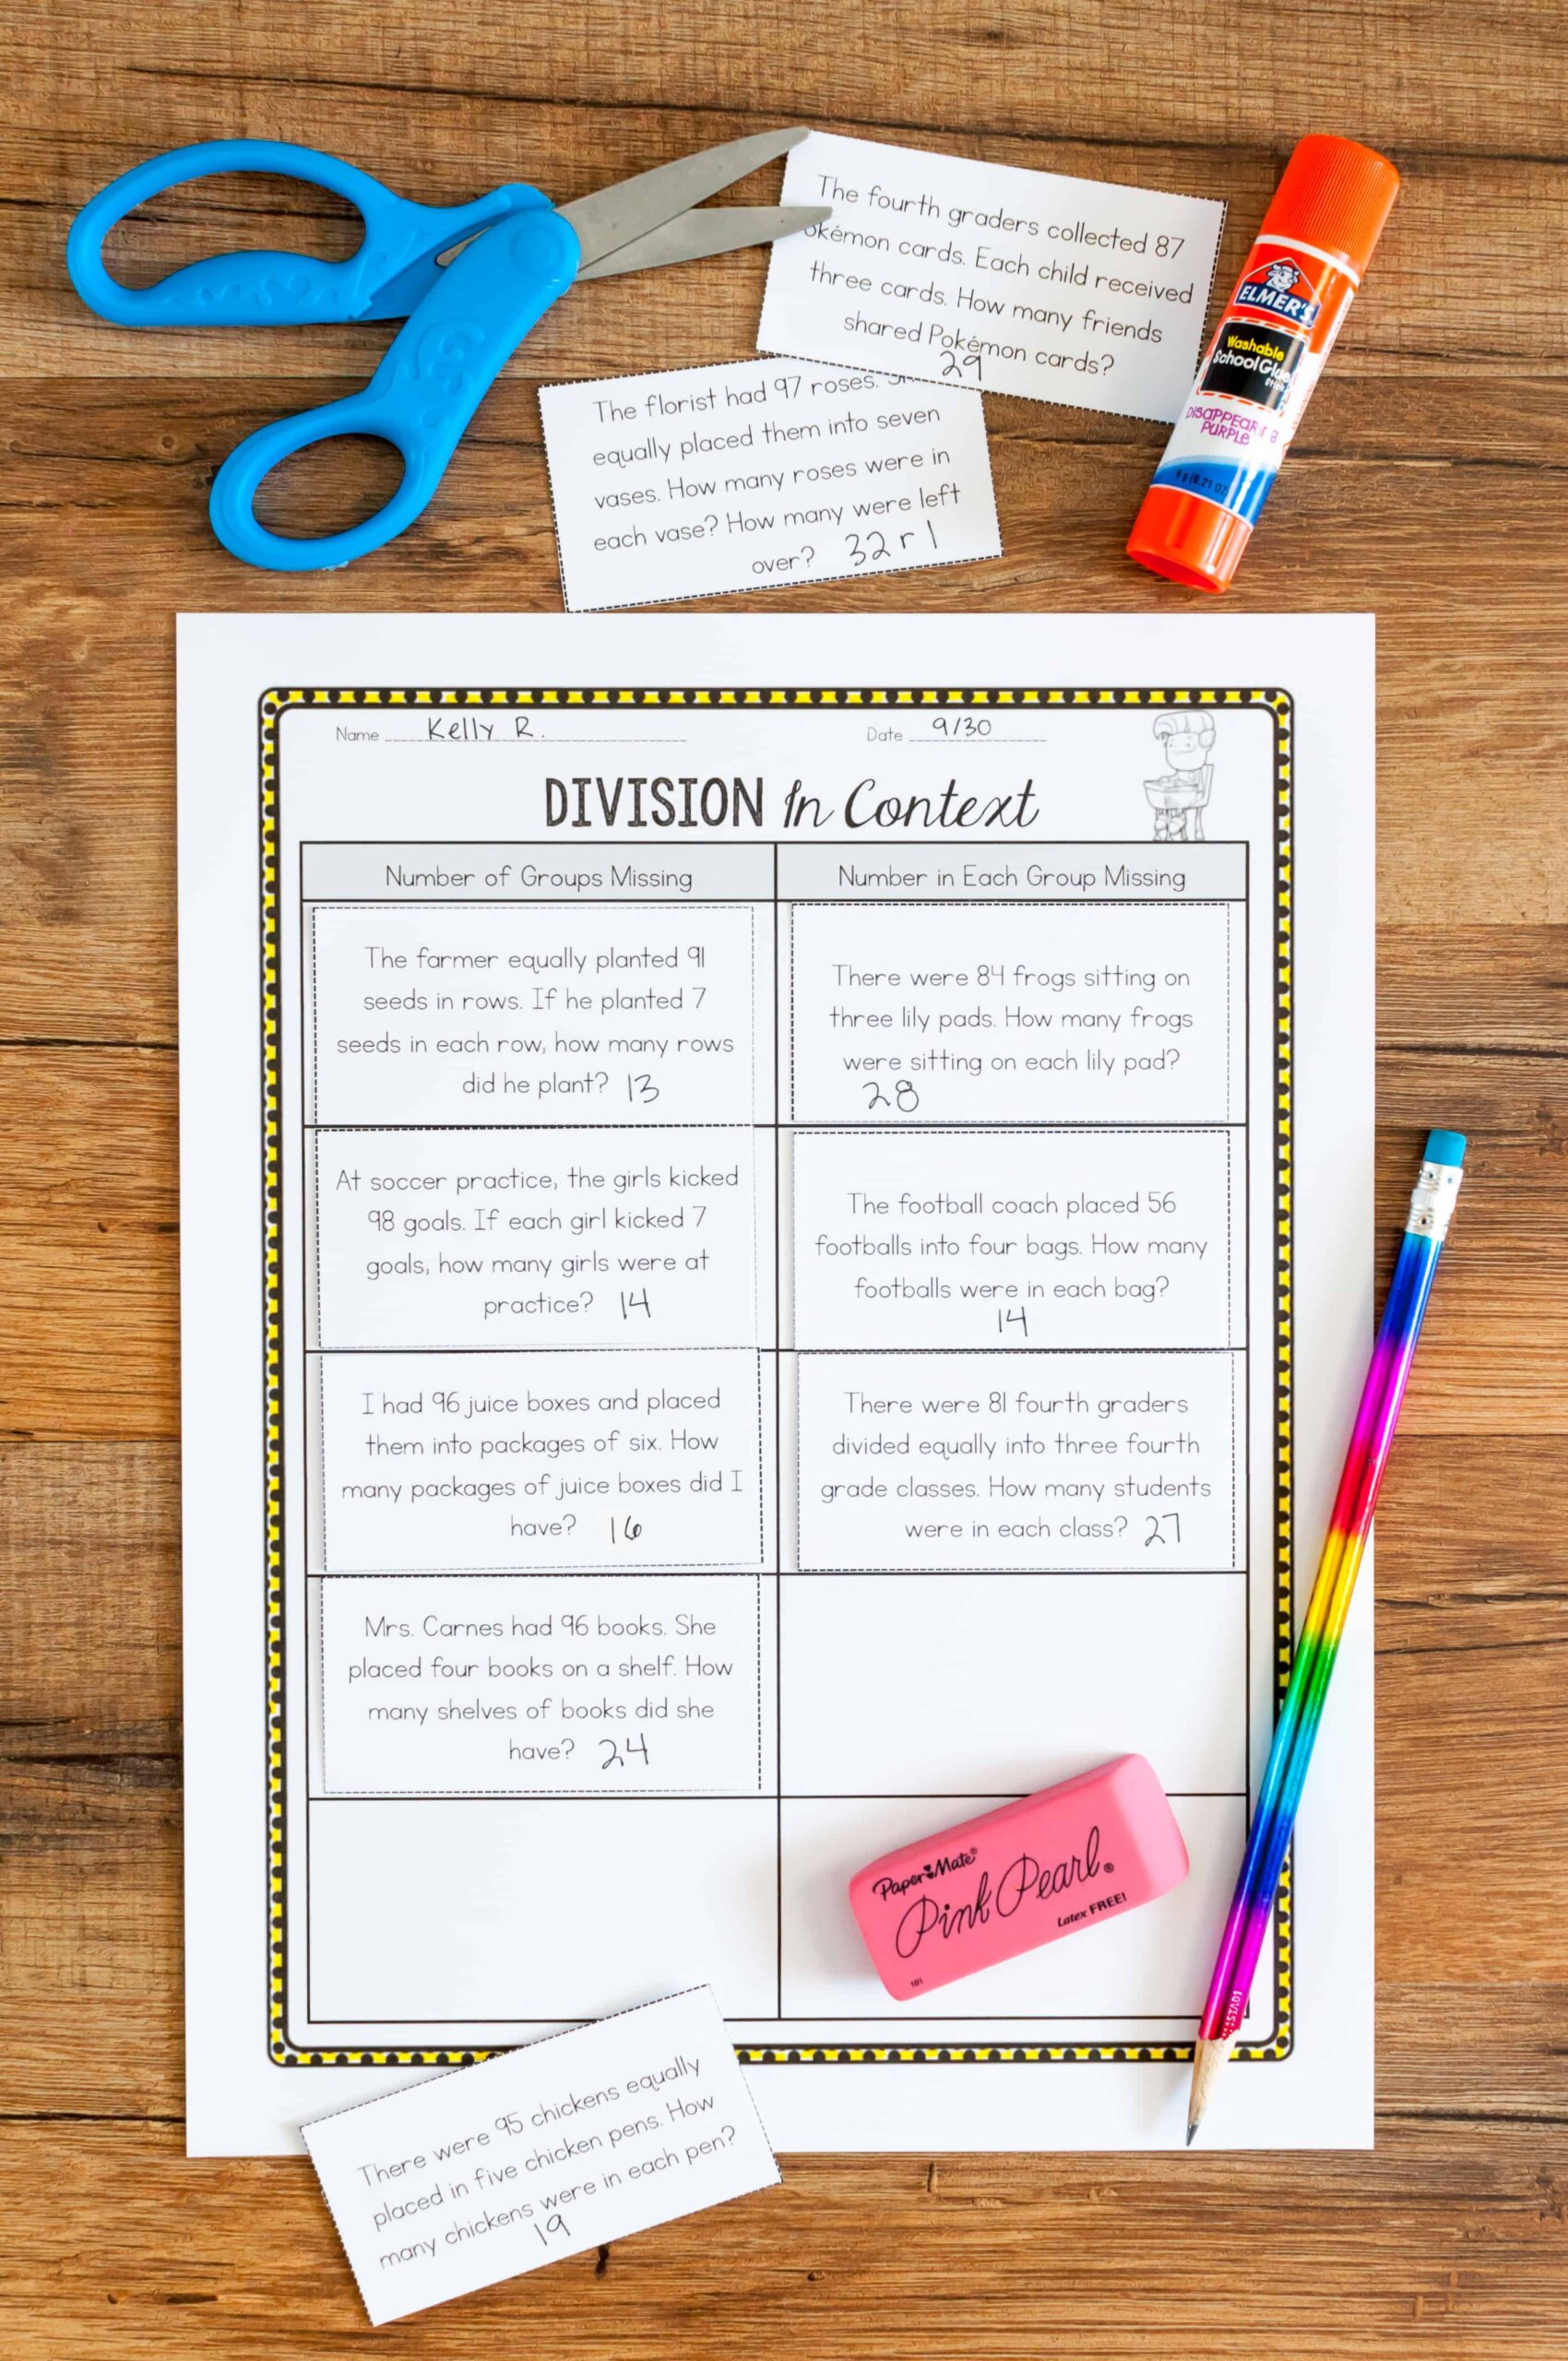 The fourth graders collected 87
okémon cards. Each child received
three cards. How many friends
shared Pokémon cards?
29
ELMER'S
Washable
School Glue
Stick
DISAPPEARING
PURPLE
The florist had 97 roses.
equally placed them into seven
vases. How many roses were in
each vase? How many were left
over? 32 r 1
Name Kelly R. Date 9/30
DIVISION In Context
Number of Groups Missing
Number in Each Group Missing
The farmer equally planted 91
seeds in rows. If he planted 7
seeds in each row, how many rows
did he plant? 13
There were 84 frogs sitting on
three lily pads. How many frogs
were sitting on each lily pad?
28
At soccer practice, the girls kicked
98 goals. If each girl kicked 7
goals, how many girls were at
practice? 14
The football coach placed 56
footballs into four bags. How many
footballs were in each bag?
14
I had 96 juice boxes and placed
them into packages of six. How
many packages of juice boxes did I
have? 16
There were 81 fourth graders
divided equally into three fourth
grade classes. How many students
were in each class? 27
Mrs. Carnes had 96 books. She
placed four books on a shelf. How
many shelves of books did she
have? 24
Paper Mate®
Pink Pearl®
Latex FREE!
101
There were 95 chickens equally
placed in five chicken pens. How
many chickens were in each pen?
19